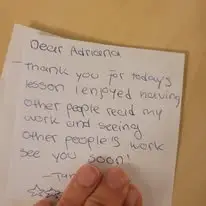 Dear Adriana
Thank you for today's
lesson I enjoyed having
other people read my
work and seeing
other people's work
see you soon!